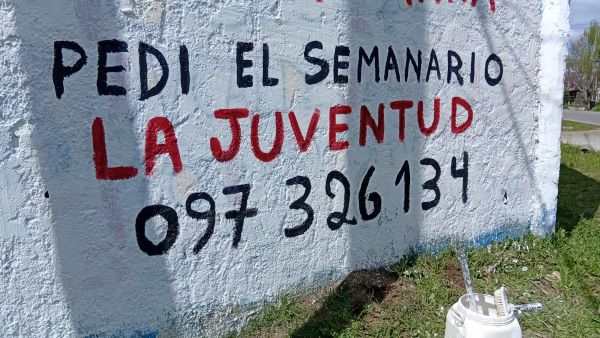 PEDI EL SEMANARIO
LA JUVENTUD
097 326 134